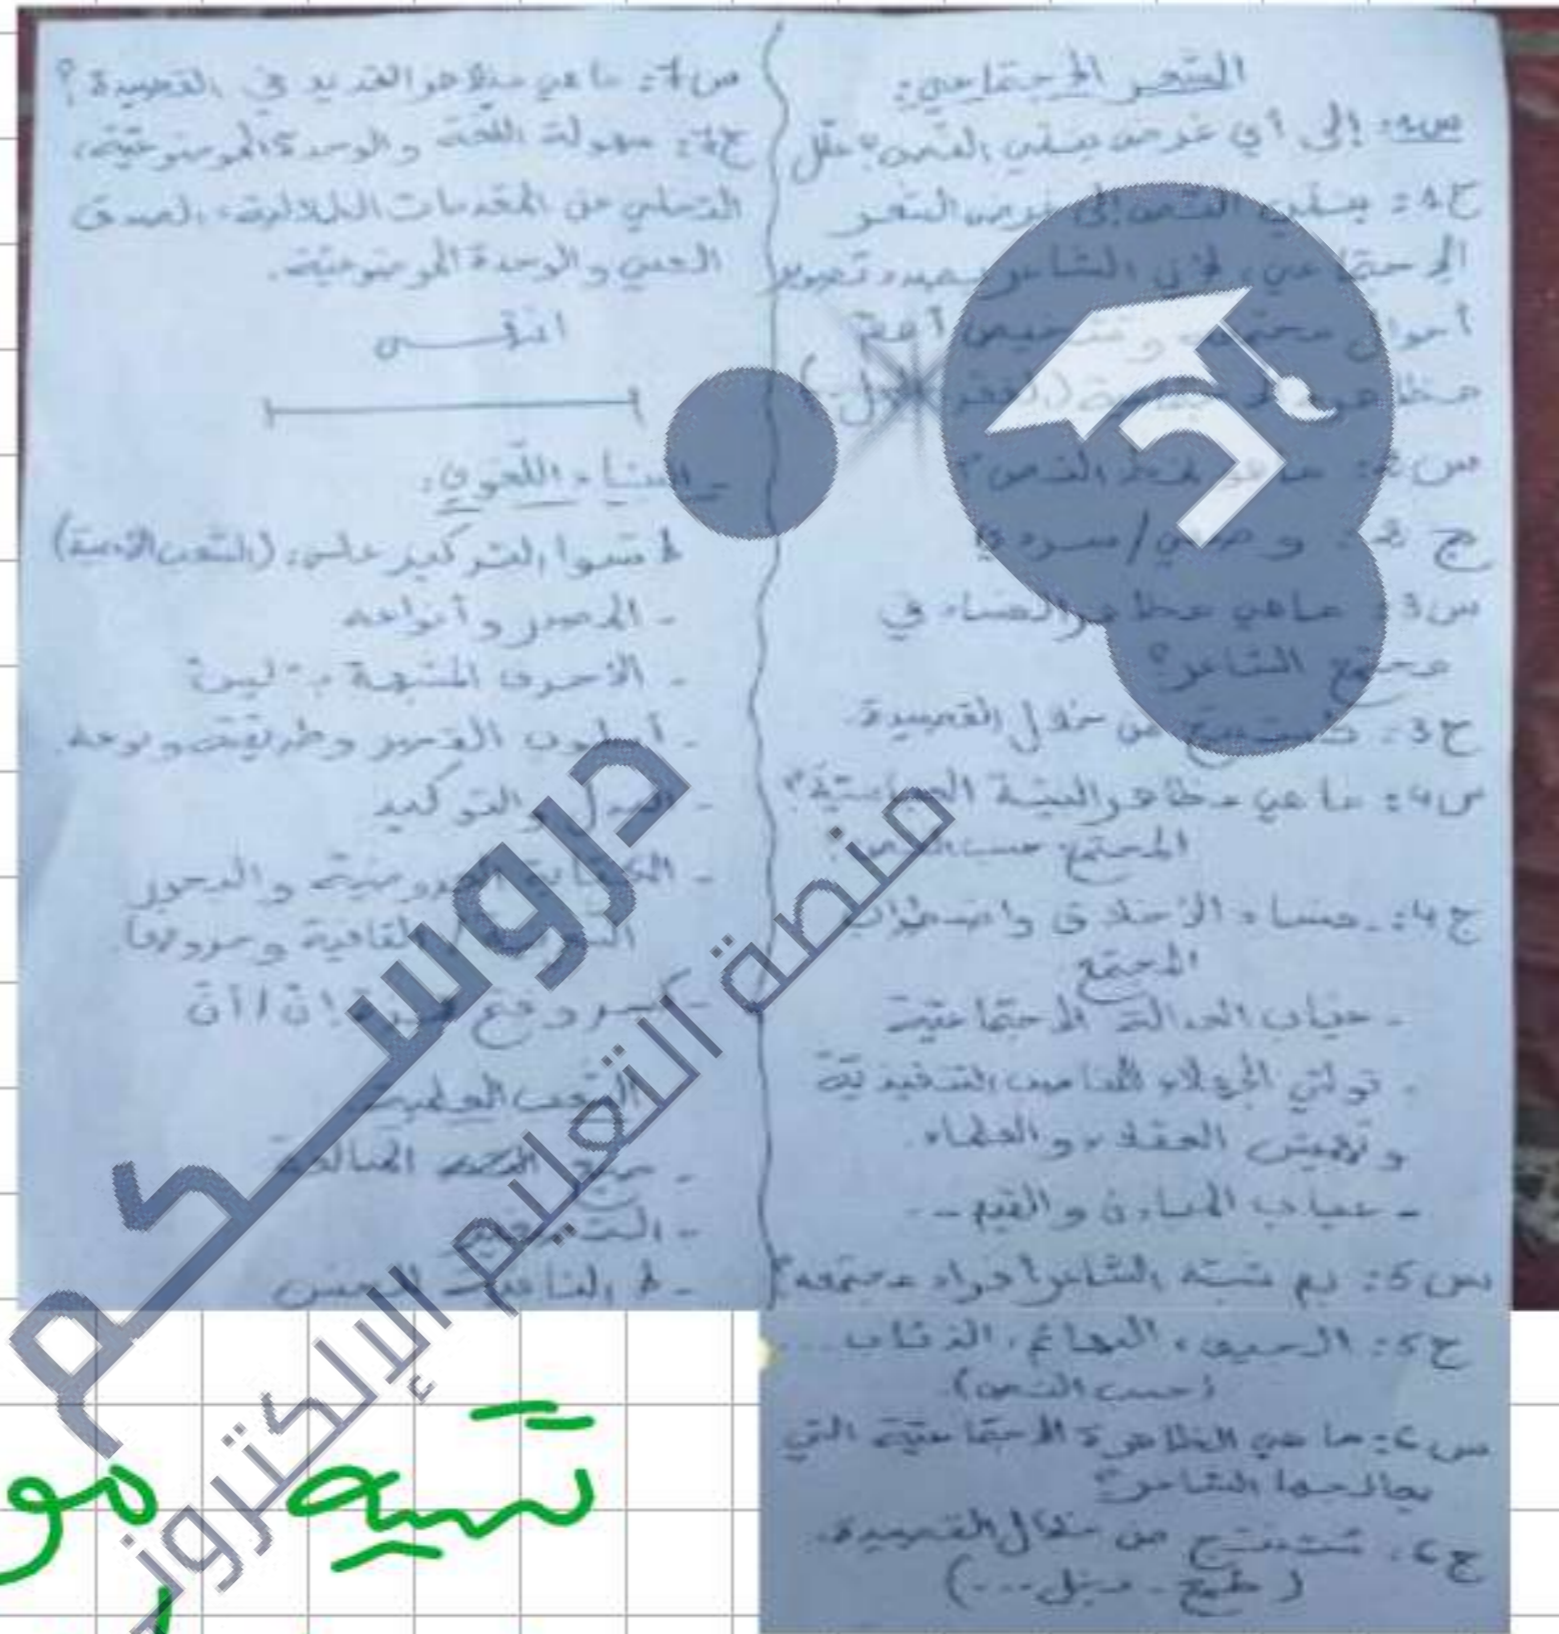 الشعر الاجتماعي:
س1: إلى أي غرض ينتمي النص؟ علل
ج1: ينتمي النص إلى غرض الشعر
الاجتماعي، لأن الشاعر بصدد تصوير
أحوال مجتمعه و أهم
مظاهر (الفقر
س2: ما هو نمط النص؟
ج2: وصفي/سردي
س3: ماهي مظاهر الفساد في
مجتمع الشاعر؟
ج3: من خلال القصيدة.
س4: ما هي مظاهر البيئة
المجتمع حسب النص؟
ج4: فساد الأخلاق واضطراب
المجتمع
- غياب العدالة الاجتماعية
- تولي الجهلاء المناصب التنفيذية
و تهميش العقلاء والعلماء.
- غياب المبادئ والقيم --
س5: بم شبه الشاعر أفراد مجتمعه؟
ج5: الحمير، البهائم، الذئاب...
(حسب النص).
س6: ما هي الظاهرة الاجتماعية التي
يعالجها الشاعر؟
ج6: تستنتج من خلال القصيدة.
(طمع - بخل ...)
س7: ما هي مظاهر التجديد في القصيدة؟
ج7: سهولة اللغة والوحدة الموضوعية،
التخلي عن المقدمات الطللية، الصدق
الفني والوحدة الموضوعية.
انتهى
- البناء اللغوي:
لا تنسوا التركيز على: (الشعب الأدبية)
- المصدر وأنواعه
- الأحرف المشبهة بـ "ليس"
- أسلوب القصر وطريقته ونوعه.
- البدل والتوكيد
- الكتابة العروضية والبحور
القافية وحروفها
- كسر وفتح همزة إن / أن
الشعب العلمية
- صيغ
- التصغير
- لا النافية للجنس
دروسكم
منصة التعليم الإلكتروني